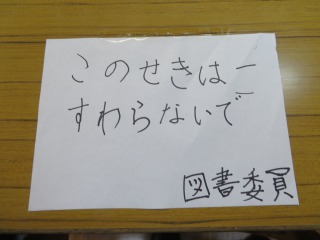 このせきは
すわらないで
図書委員